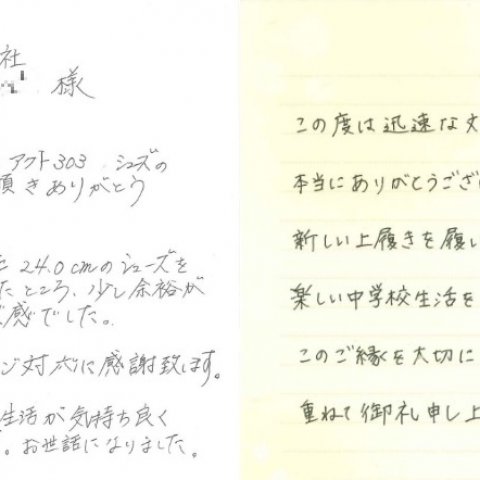 社
様
アクト303 シューズの
頂きありがとう
24.0cmのシューズを
たところ、少し余裕が
感でした。
ご対応に感謝致します。
生活が気持ち良く
。お世話になりました。
この度は迅速な
本当にありがとうござい
新しい上履きを履い
楽しい中学校生活を
このご縁を大切に
重ねて御礼申し上